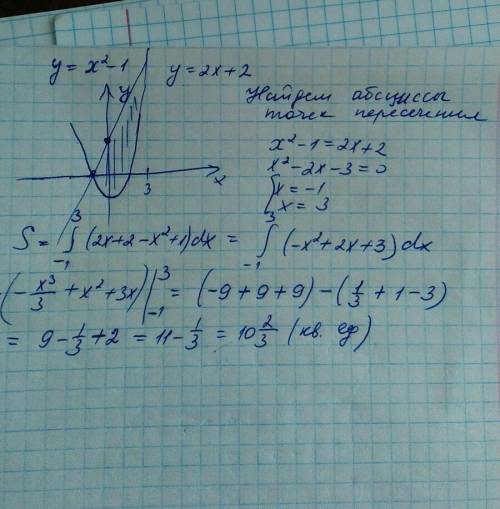 y = x² - 1   y = 2x + 2
y
Найдем абсциссы
точек пересечения
x² - 1 = 2x + 2
x² - 2x - 3 = 0
[ x = -1
[ x = 3
3   x
S = ∫₋₁³ (2x + 2 - x² + 1) dx = ∫₋₁³ (-x² + 2x + 3) dx
(-x³/3 + x² + 3x) |₋₁³ = (-9 + 9 + 9) - (1/3 + 1 - 3)
= 9 - 1/3 + 2 = 11 - 1/3 = 10 2/3 (кв. ед)